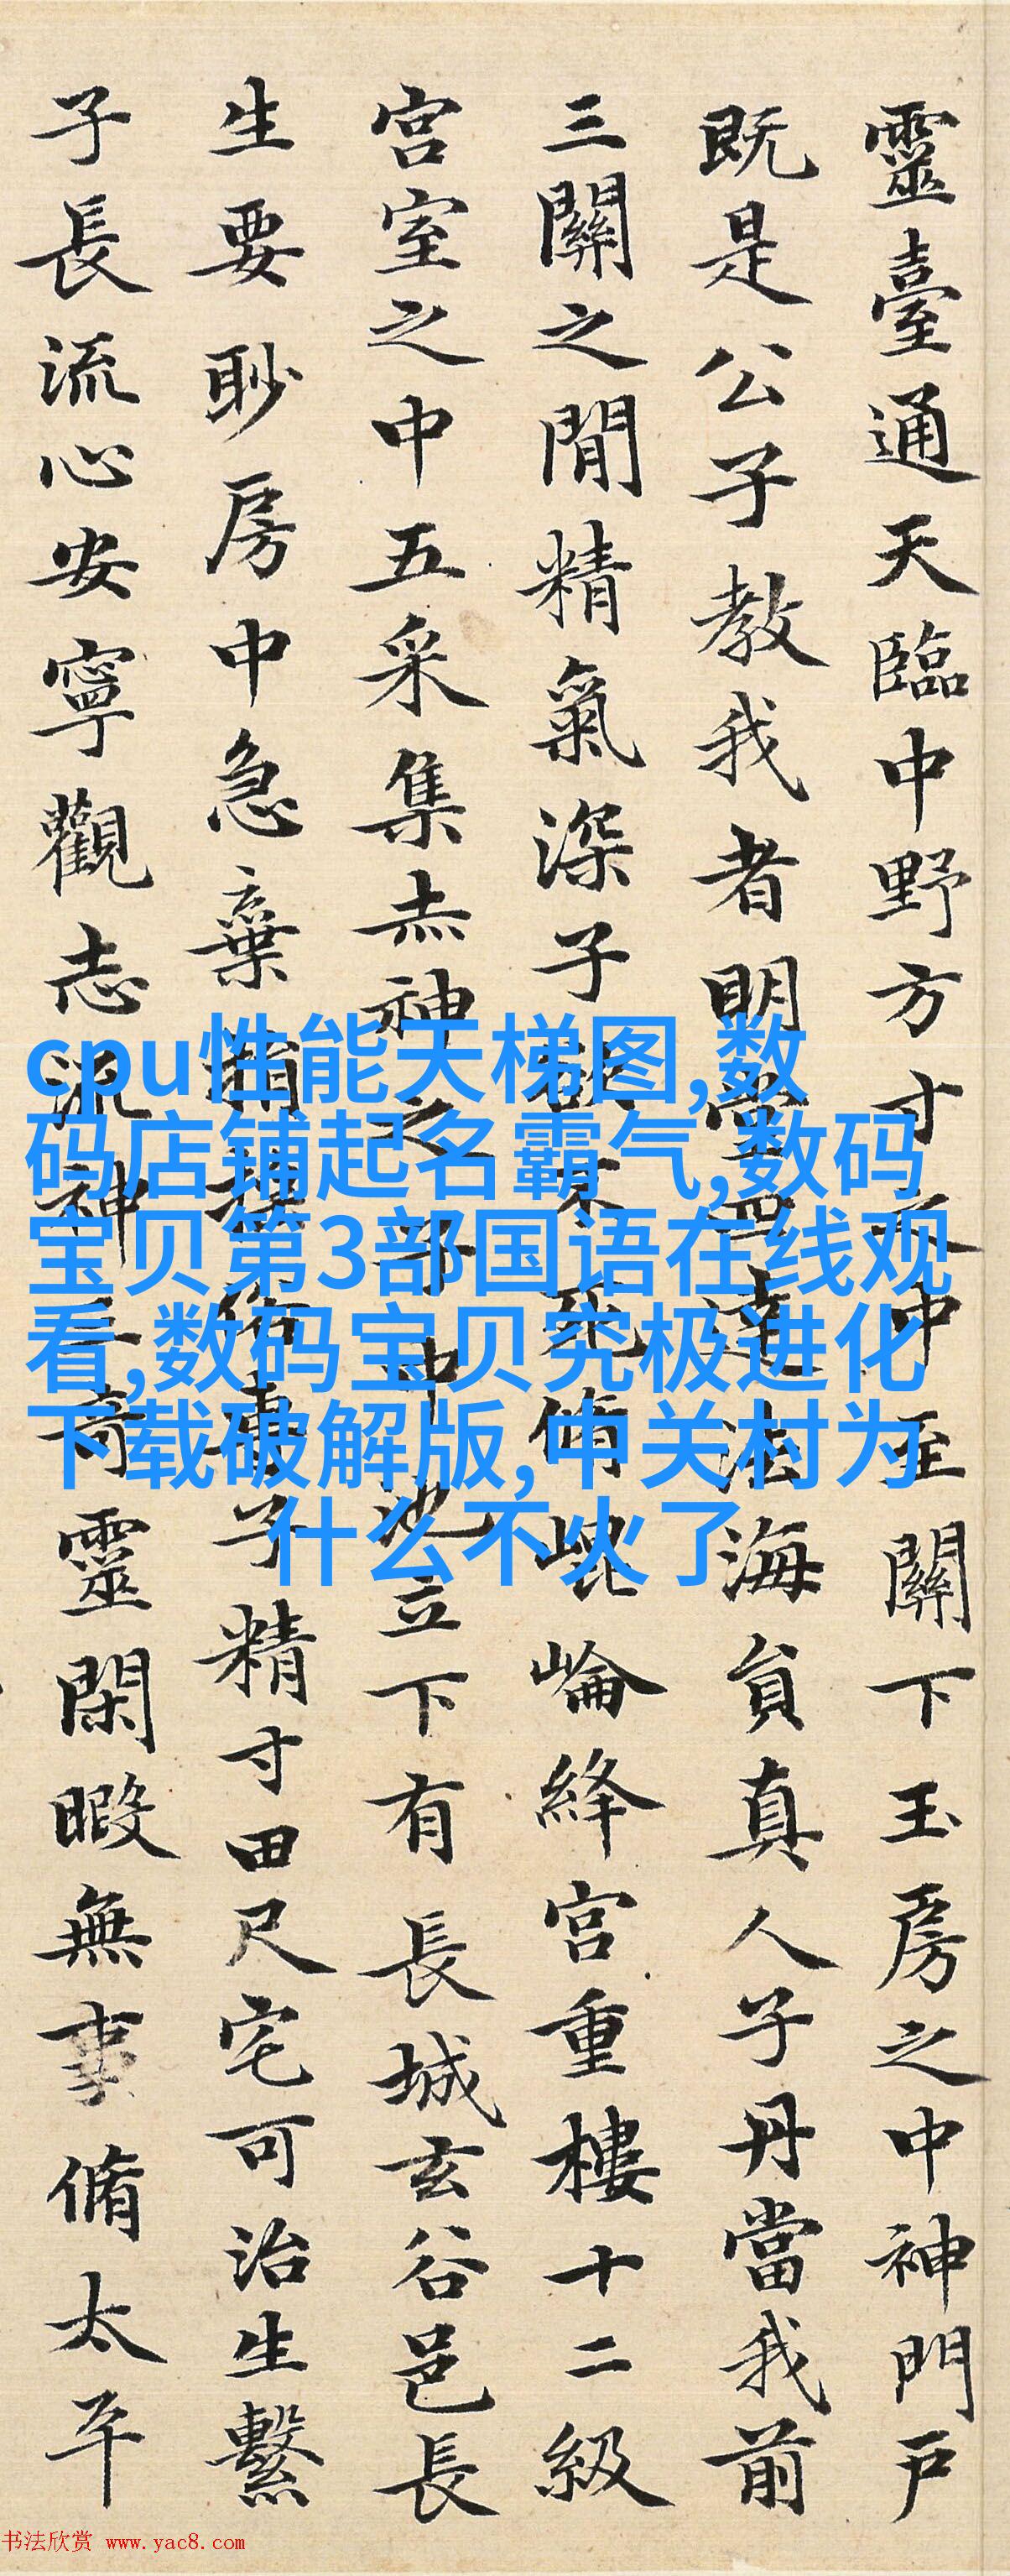 靈臺通天臨中野方寸之中至關下玉房之中神門戶
既是公子教我者明堂四達法海員真人子丹當我前
三關之閒精氣深子欲不死脩崐崘絳宮重樓十二級
宮室之中五采集赤神之子中池立下有長城玄谷邑長
生要眇房中急棄捐搖俗專子精寸田尺宅可治生繫
子長流心安寧觀志流神三奇靈閑暇無事脩太平
cpu性能天梯图,数
码店铺起名霸气,数码
宝贝第3部国语在线观
看,数码宝贝究极进化
下载破解版,中关村为
什么不火了
书法欣赏 www.yac8.com